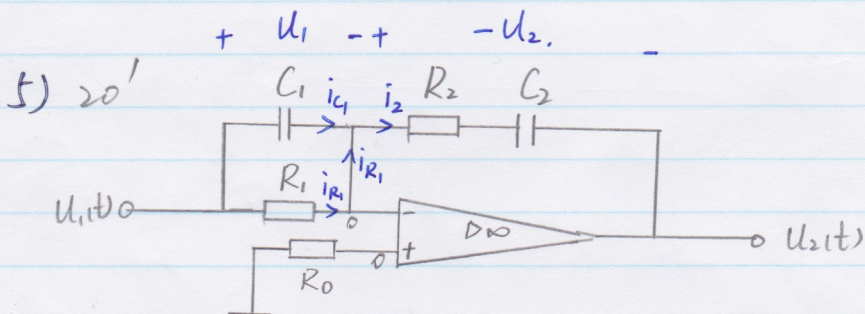 + U₁ - + - U₂. -
5) 20'
C₁ i_C₁ i₂ R₂ C₂
i_R₁
U₁(t) R₁ i_R₁ 0 - ▷∞ U₂(t)
0 +
R₀